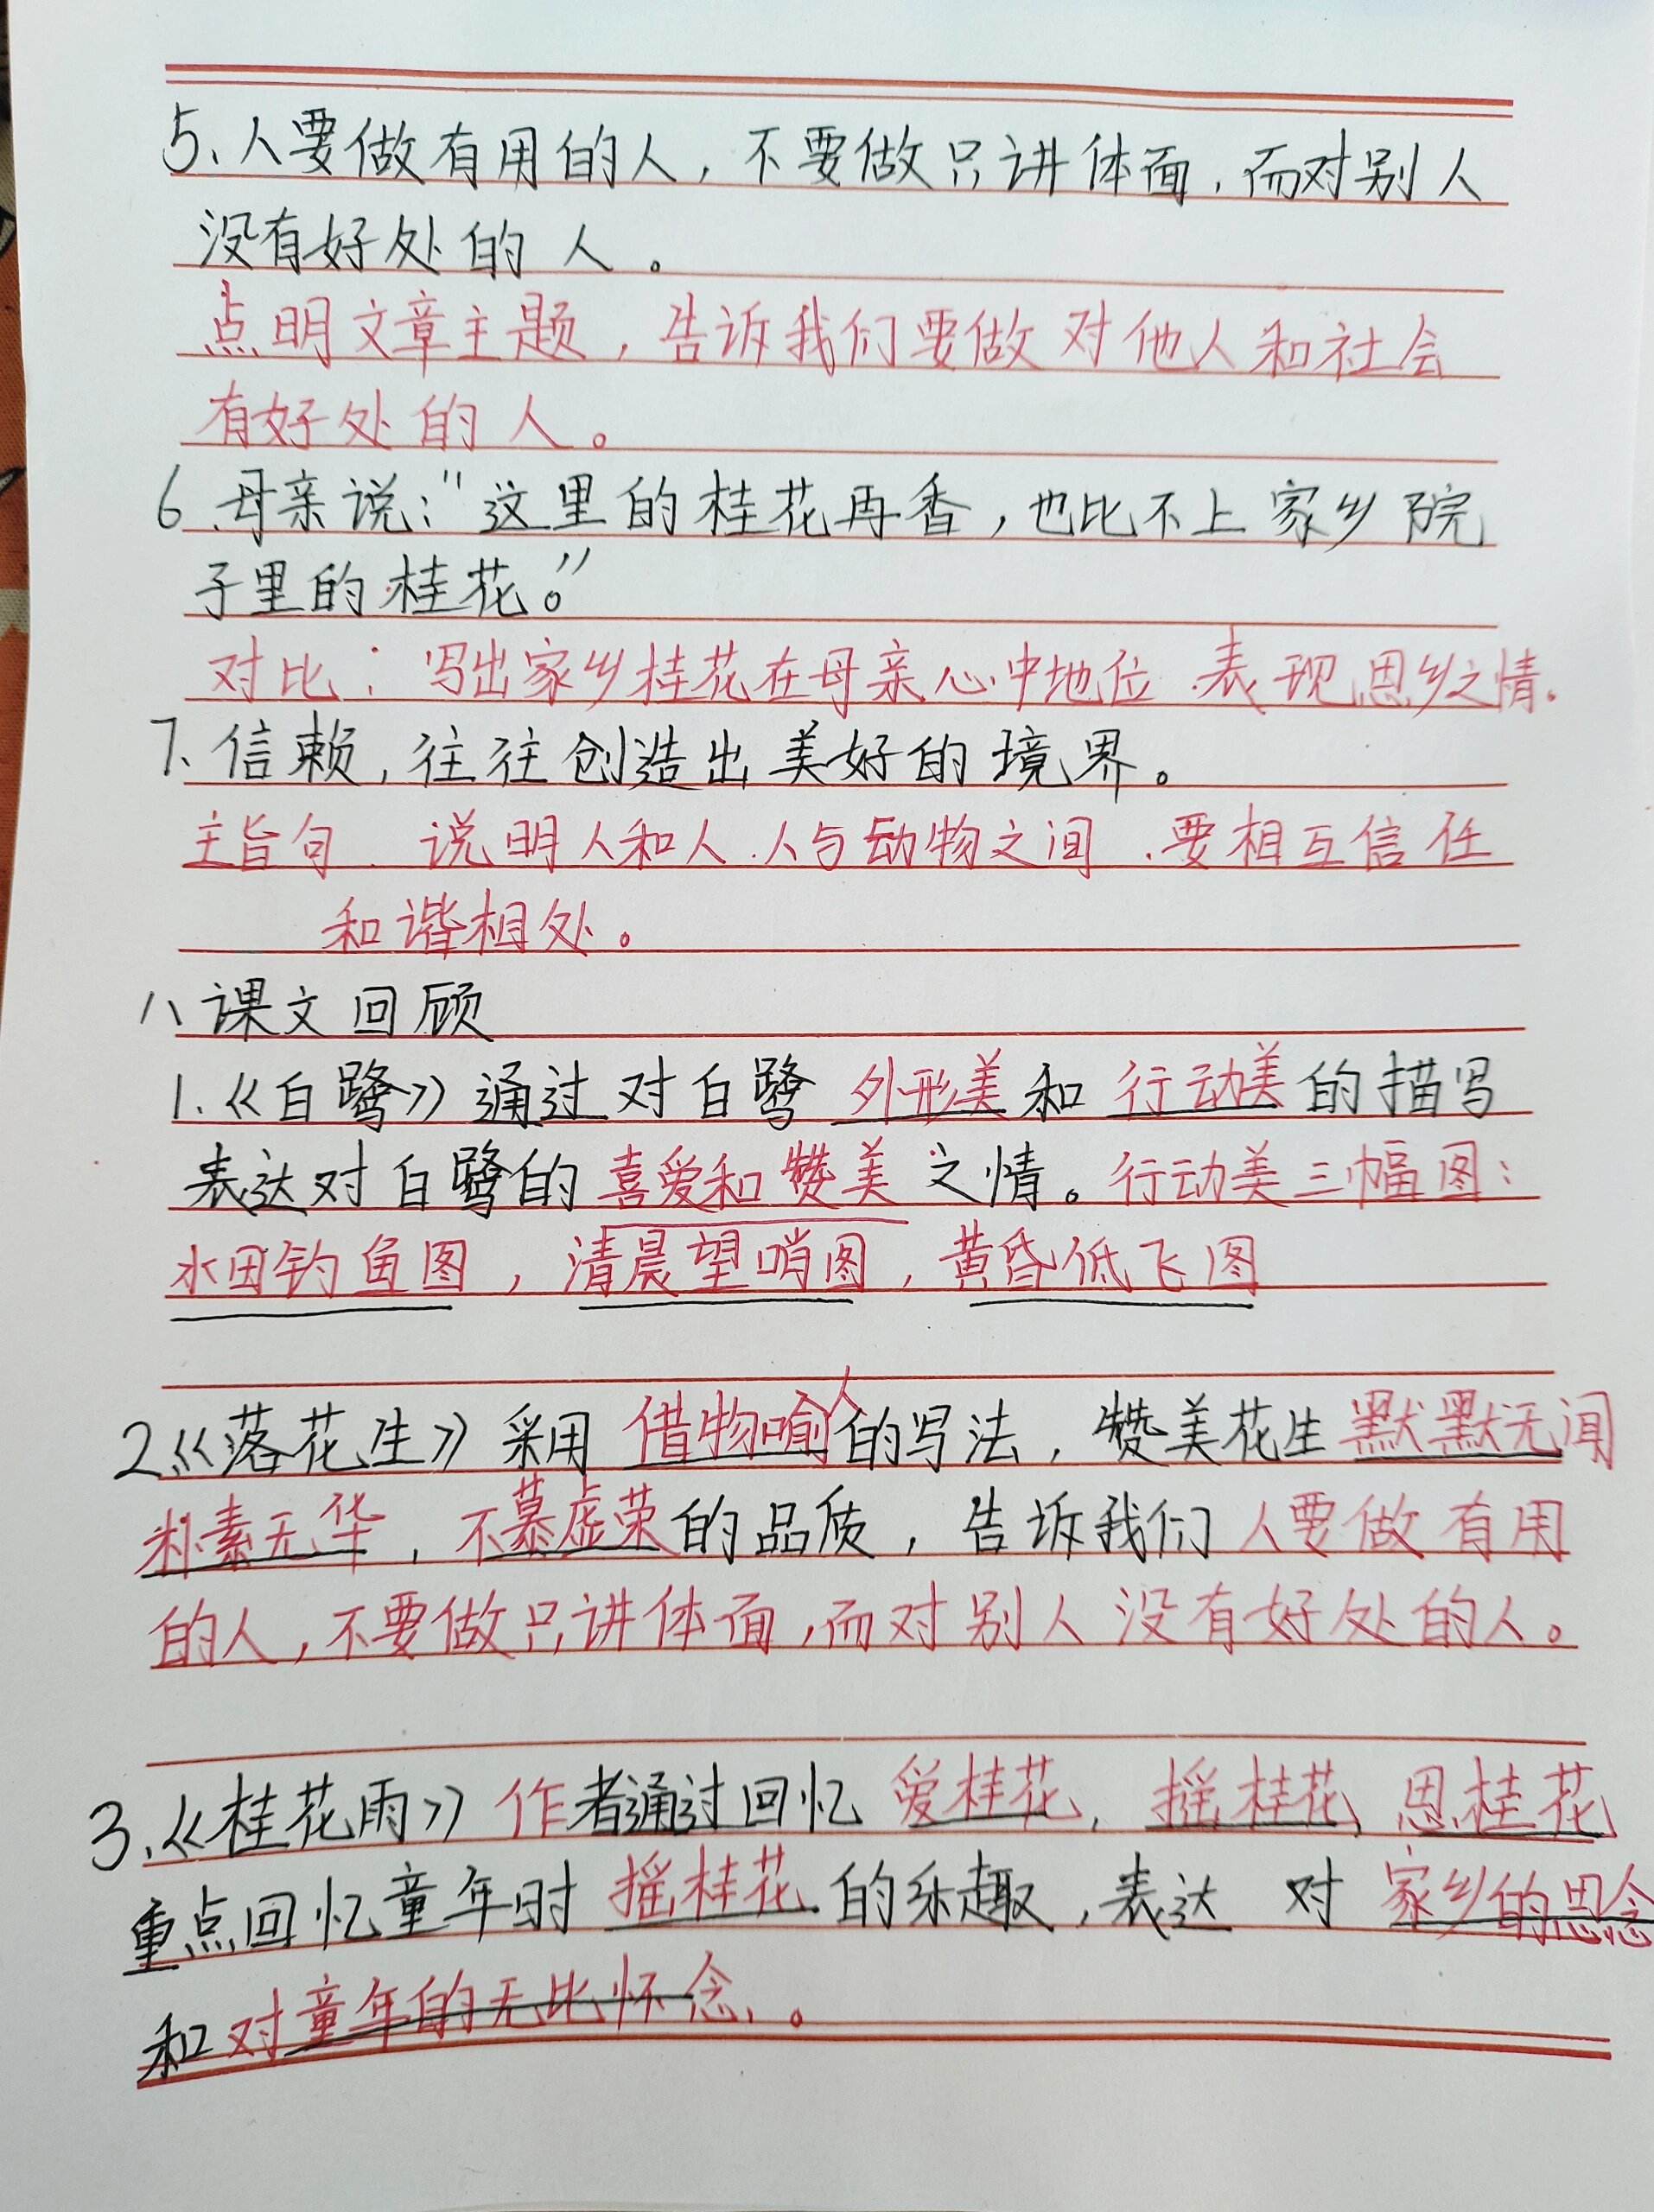 5、人要做有用的人，不要做只讲体面，而对别人
没有好处的人。
点明文章主题，告诉我们要做对他人和社会
有好处的人。
6.母亲说："这里的桂花再香，也比不上家乡院
子里的桂花。"
对比：写出家乡桂花在母亲心中地位.表现思乡之情。
7、信赖，往往创造出美好的境界。
主旨句.说明人和人.人与动物之间.要相互信任
和谐相处。
八、课文回顾
1.《白鹭》通过对白鹭外形美和行动美的描写
表达对白鹭的喜爱和赞美之情。行动美三幅图：
水田钓鱼图，清晨望哨图，黄昏低飞图
2.《落花生》采用借物喻人的写法，赞美花生默默无闻
朴素无华，不慕虚荣的品质，告诉我们人要做有用
的人，不要做只讲体面，而对别人没有好处的人。
3.《桂花雨》作者通过回忆爱桂花，摇桂花、思桂花
重点回忆童年时摇桂花的乐趣，表达对家乡的思念
和对童年的无比怀念。